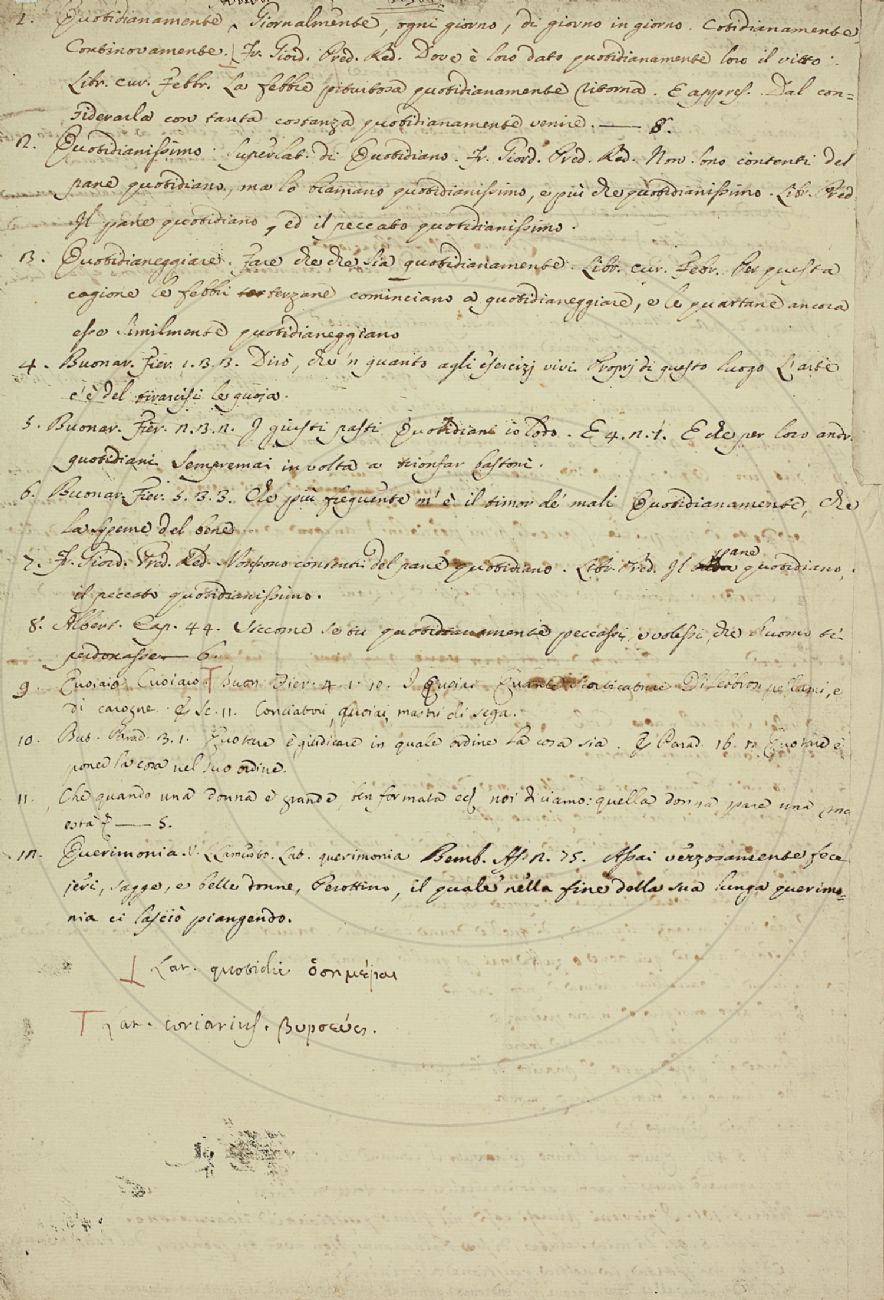 1. Quotidianamente. Giornalmente, ogni giorno, di giorno in giorno. Cotidianamente,
Continovamente. Fr. Giord. Pred. Red. Dove è loro dato quotidianamente loro il vitto.
Libr. cur. Febbr. La febbre pituitosa quotidianamente ritorna. E appress. Dal con=
siderarla con tanta costanza quotidianamente venire. — 8.
2. Quotidianissimo. Superlat. di Quotidiano. Fr. Giord. Pred. Red. Non sono contenti del
pane quotidiano, ma lo bramano quotidianissimo, e più che quotidianissimo. Lib. Pred
Il pane quotidiano, ed il peccato quotidianissimo.
3. Quotidianeggiare. Fare che che sia quotidianamente. Libr. cur. Febr. Per questa
cagione le febbri terzane cominciano a quotidianeggiare, e le quartane ancora
esse similmente quotidianeggiano
4. Buonar. Fier. 1. 3. 3. Dirò, che 'n quanto agli esercizj vivi Proprj di questo luogo L'arte
c'è del tirarcisi le quoja.
5. Buonar. Fier. 2. 3. 2. I giusti pasti Quotidiani io lodo. E 4. 2. 7. E che per loro andr.
quotidiani Sempremai in volta a trionfar bastoni.
6. Buonar. Fier. 5. 3. 3. Che più frequente m'è il timor de' mali Quotidianamente, che
La speme del bene
7. Fr. Giord. Pred. Red. Non sono contenti del pane quotidiano. Libr. Pred. Il pane quotidiano,
il peccato quotidianissimo.
8. Albert. Cap. 44. Siccome se tu quotidianamente peccassi, e volessi, che l'uomo ti
perdonasse — 6.
9. Quoiaio Cuoiaio Buon. Fier. 4. 1. 10. I Quoiai Di lebbron pellami, e
di carogne. E Sc. 11. Conciatori, quoiai, mastri di sega.
10. But. Parad. 3. 1. Quotare è giudicare in quale ordine la cosa sia. E Parad. 16. 2. Quotare è
ponere la cosa nel suo ordine.
11. Che quando una donna è grande, ben formata noi diciamo: quella donna pare una
— 5.
12. Querimonia. Lat. querimonia Bemb. As. 2. 75. Assai vezzosamente fece
jeri, sagge, e belle donne, Perottino, il quale nella fine della sua lunga querimo=
nia ci lasciò piangendo.
Lat. quotidie ὁσημέραι
Lat. coriarius. βυρσεύς.